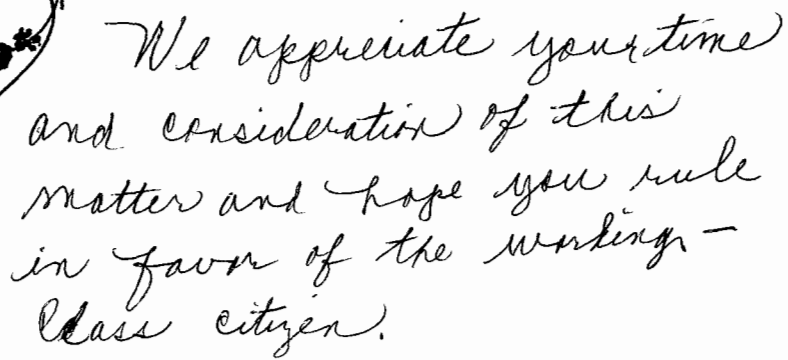 We appreciate your time
and consideration of this
matter and hope you rule
in favor of the working-
class citizen.